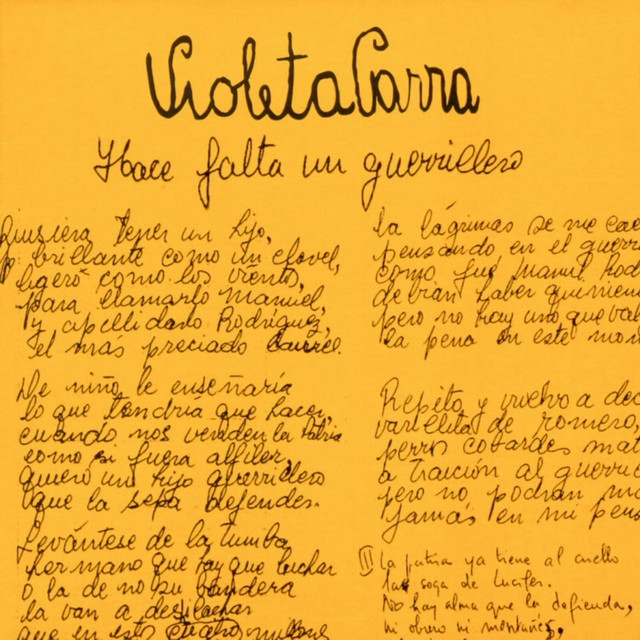 Violeta Parra
Hace falta un guerrillero
Quisiera tener un hijo,
brillante como un clavel,
ligero como los vientos,
para llamarlo Manuel,
y apellidarlo Rodríguez,
el más preciado laurel.
De niño le enseñaría
lo que tendría que hacer,
cuando nos venden la Patria
como si fuera alfiler,
quiero un hijo guerrillero
que la sepa defender.
Levántese de la tumba
hermano que hay que luchar
o la de no su bandera
la van a desilachar
que en esto
la lágrimas se me cae
pensando en el guerri
como fué Manuel Rod
debían haber quinien
pero no hay uno que val
la pena en este mom
Repito y vuelvo a dec
varillita de romero,
perros cobardes mat
a traición al guerri
pero no podran ma
jamás en mi pens
II La patria ya tiene al cuello
la soga de Lucifer.
No hay alma que la defienda,
ni obrero ni montañés,